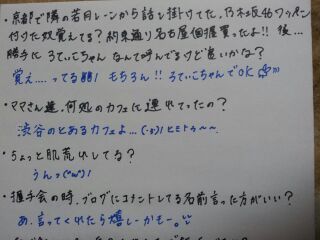 ・京都で隣の若月レーンから話し掛けてた、乃木坂46ワッペン
付けた奴覚えてる?約束通り名古屋個握買ったよ!!後…
勝手にろってぃーちゃんなんて呼んでるけど良いかな?
覚え…ってる!!! もちろん!! ろてぃこちゃんでOK
・ママさん達、何処のカフェに連れてったの?
渋谷のとあるカフェよ…(･з･)ヒミトゥ〜〜
・ちょっと肌荒れしてる?
うんっ(^ω^)!
・握手会の時、ブログにコメントしてる名前言った方がいい?
あ、言ってくれたら嬉しーかもー。